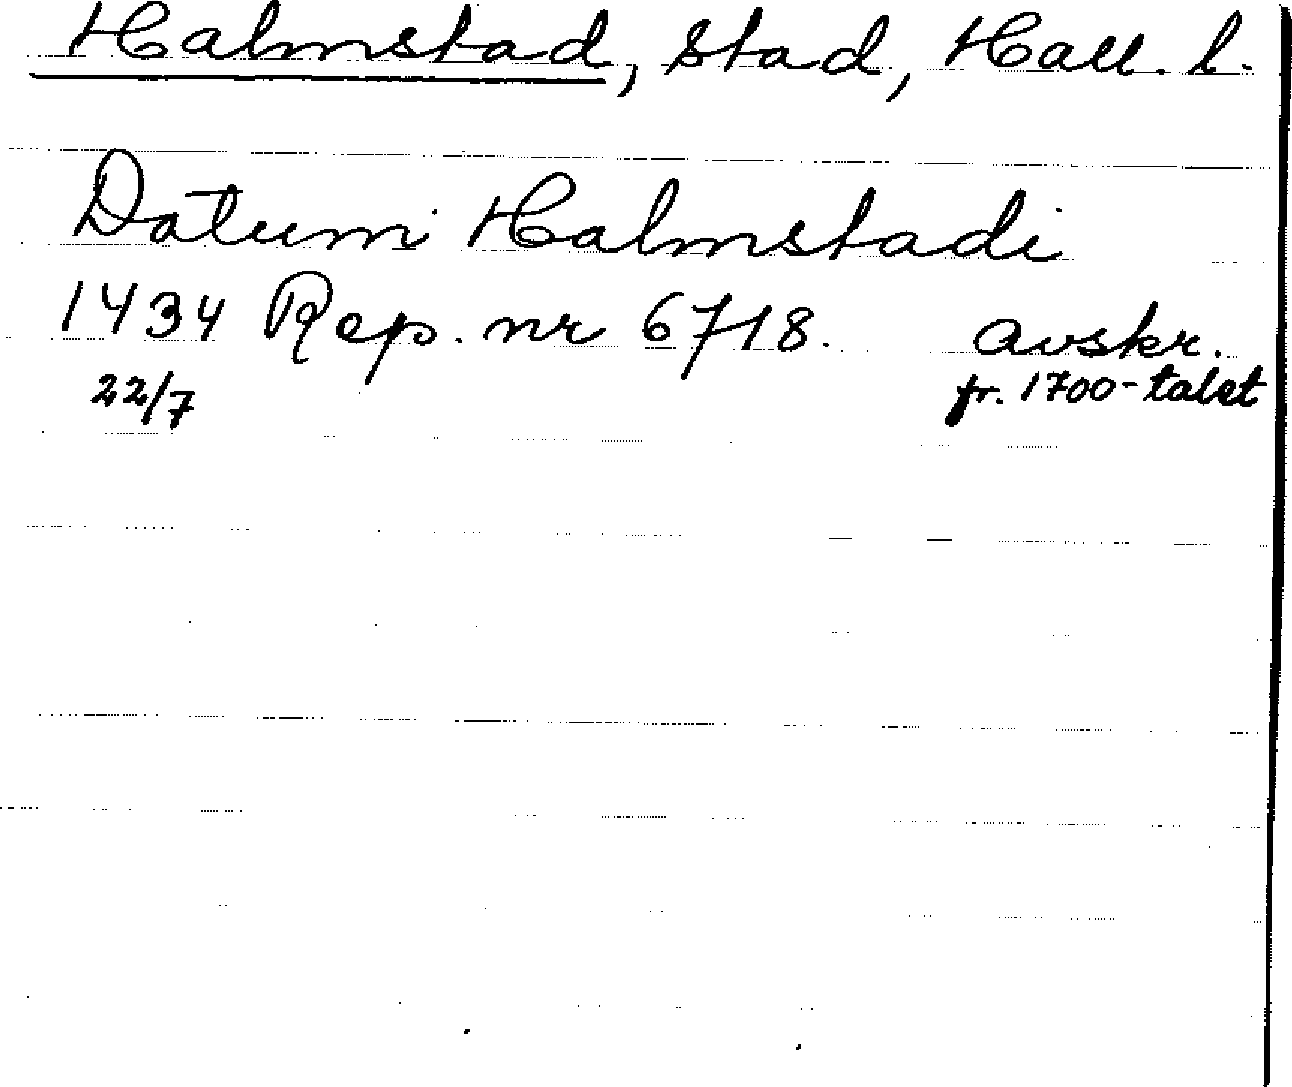 Halmstad, stad, Hall. l.
Datum Halmstadi
1434 Rep. nr 6718. avskr.
22/7 fr. 1700-talet